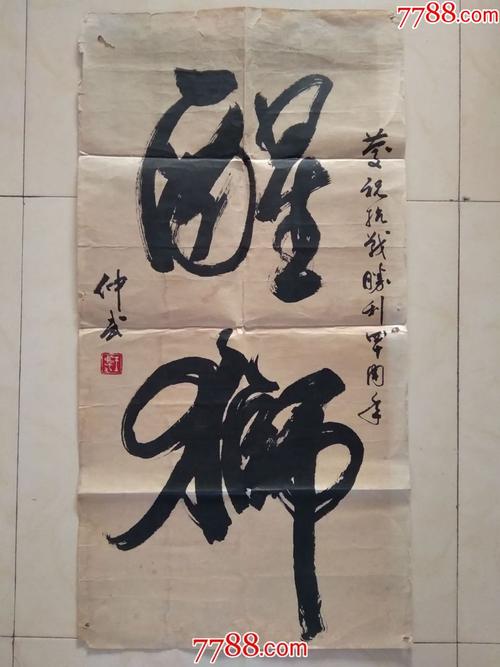 7788.com
慶祝抗战勝利四十周年
醒
獅
仲武
7788.com